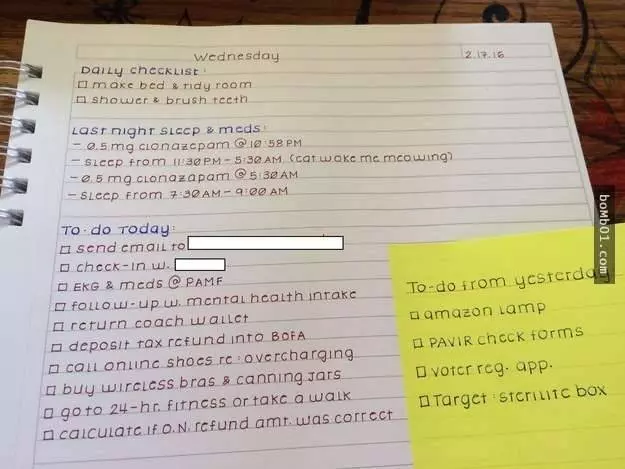 Wednesday
2.17.16
Daily checklist:
☐ make bed & tidy room
☐ shower & brush teeth
Last night sleep & meds:
- 0.5 mg clonazepam @ 10:58 PM
- sleep from 11:30 PM - 5:30 AM (cat woke me meowing)
- 0.5 mg clonazapam @ 5:30 AM
- sleep from 7:30 AM - 9:00 AM
To-do today:
☐ send email to
☐ check-in w.
☐ EKG & meds @ PAMF
☐ follow-up w. mental health intake
☐ return coach wallet
☐ deposit tax refund into BOFA
☐ call online shoes re: overcharging
☐ buy wireless bras & canning jars
☐ go to 24-hr. fitness or take a walk
☐ calculate if O.N. refund amt. was correct
To-do from yesterday
☐ amazon lamp
☐ PAVIR check forms
☐ voter reg. app.
☐ Target: sterilite box
boMb01.com